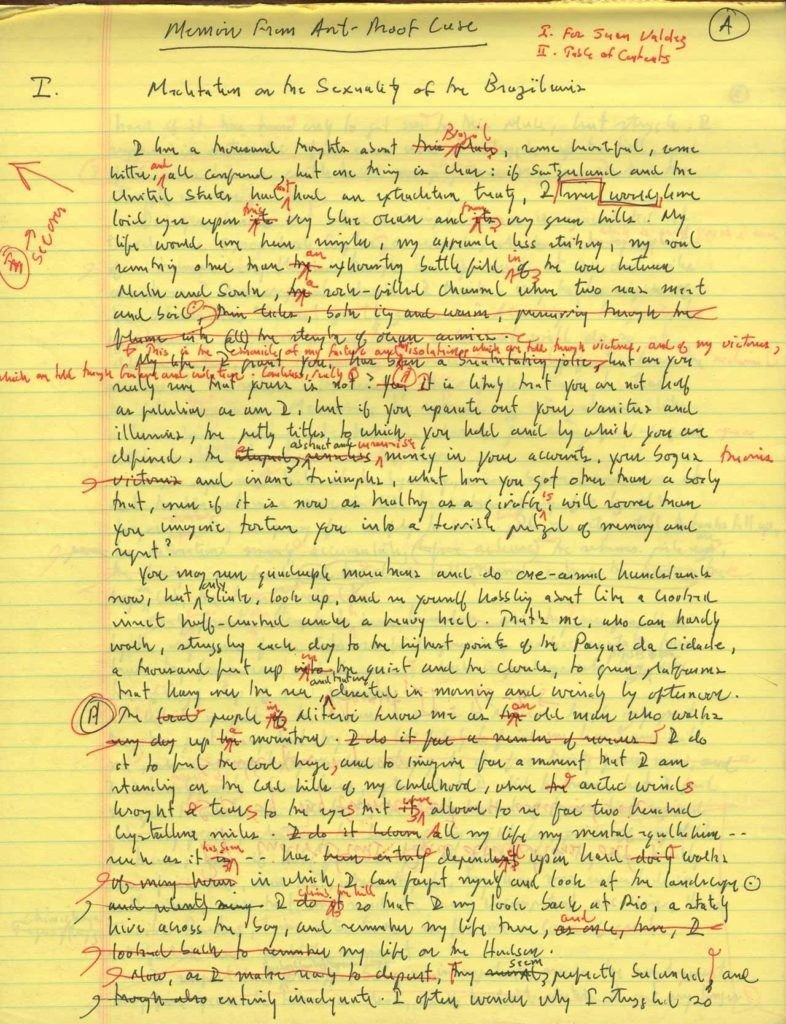 Memoir From Ant-Proof Case
A
I. For Juan Valdez
II. Table of Contents
I. Meditation on the Sexuality of the Brazilians
I have a thousand thoughts about this place Brazil, some beautiful, some
bitter, and all confused, but one thing is clear: if Switzerland and the
United States had not had an extradition treaty, I never would have
laid eyes upon its this very blue ocean and its these very green hills. My
life would have been simpler, my appearance less striking, my soul
something other than the an exhausting battlefield of in the war between
North and South, the a rock-filled channel where two seas meet
and boil, their tides, both icy and warm, pressuring through the
with all the strength of ocean armies.
This is the chronicle of my failure and isolation, which are told through victories, and of my victories,
which are told through failure and isolation.
My life, I grant you, has been a joke, but are you
really sure that yours is not? It is likely that you are not half
as peculiar as am I, but if you separate out your vanities and
illusions, the petty titles to which you hold and by which you are
defined, the abstract and money in your accounts, your bogus theories
victories and inane triumphs, what have you got other than a body
that, even if it is now as healthy as a giraffe's, will sooner than
you imagine torture you into a terrible pretzel of memory and
regret?
You may run quadruple marathons and do one-armed handstands
now, but only blink, look up, and see yourself hobbling about like a crooked
insect half-crushed under a heavy heel. That's me, who can hardly
walk, struggling each day to the highest points of the Parque da Cidade,
a thousand feet up into in the quiet and the clouds, to green platforms
that hang over the sea, deserted in morning and windy by afternoon.
A The local people of in Niteroi know me as the an old man who walks
every day up the a mountain. I do it for a number of reasons I do
it to feel the cool haze, and to imagine for a moment that I am
standing on the cold hills of my childhood, where the arctic winds
brought tears to the eyes that allowed to see for two hundred
crystalline miles. I do it because All my life my mental equilibrium --
such as it is has been -- has been entirely dependent upon hard walks
of many hours in which I can forget myself and look at the landscape.
I do climb the hill so that I may look back at Rio, a stately
hive across the bay, and remember my life there, as once, there, I and
looked back to remember my life on the Hudson.
Now, as I make ready to depart, they seem perfectly balanced, and
though also entirely inadequate. I often wonder why I struggled so